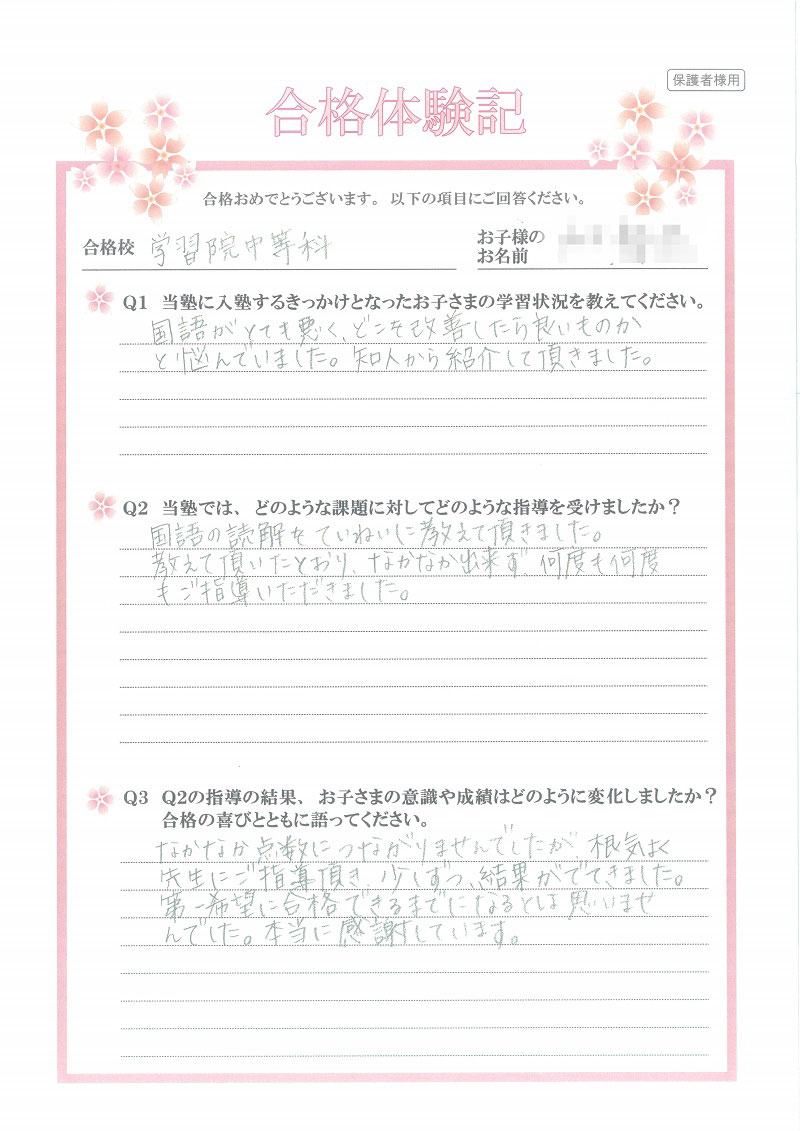 保護者様用
合格体験記
合格おめでとうございます。以下の項目にご回答ください。
合格校 学習院中等科
お子様の
お名前
Q1 当塾に入塾するきっかけとなったお子さまの学習状況を教えてください。
国語がとても悪く、どこを改善したら良いものか
と悩んでいました。知人から紹介して頂きました。
Q2 当塾では、どのような課題に対してどのような指導を受けましたか？
国語の読解をていねいに教えて頂きました。
教えて頂いたとおり、なかなか出来ず、何度も何度
もご指導いただきました。
Q3 Q2の指導の結果、お子さまの意識や成績はどのように変化しましたか？
合格の喜びとともに語ってください。
なかなか点数につながりませんでしたが、根気よく
先生にご指導頂き、少しずつ、結果がでてきました。
第一希望に合格できるまでになるとは思いませ
んでした。本当に感謝しています。